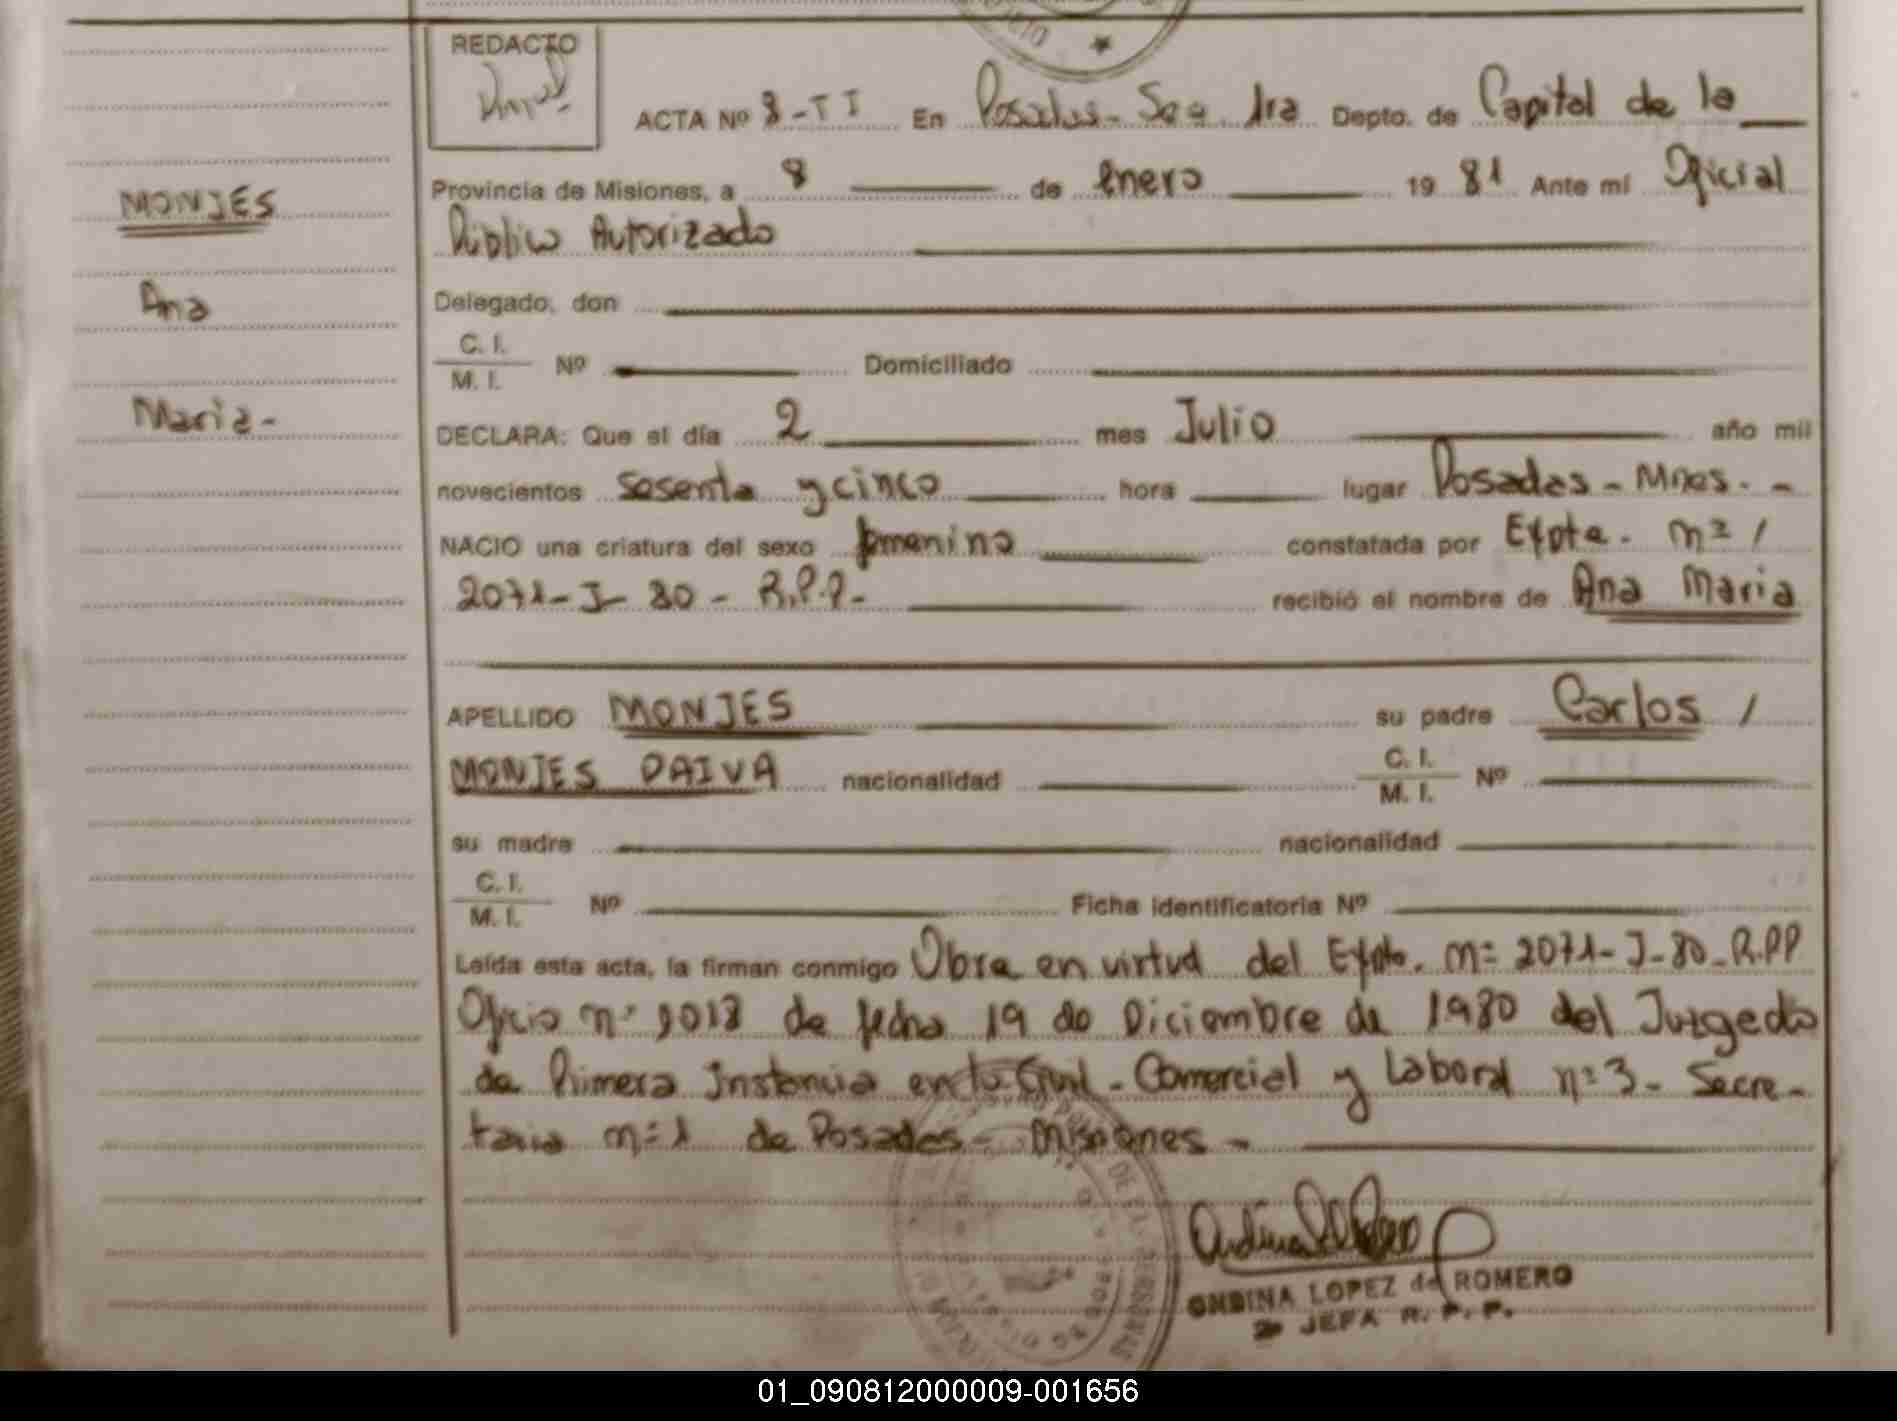 REDACTO
ACTA Nº 8-TI En Posadas - Sec. 1ra Depto. de Capital de la
Provincia de Misiones, a 8 de enero 1981 Ante mí Oficial
Público Autorizado
Delegado, don
C. I.
M. I. Nº Domiciliado
DECLARA: Que el día 2 mes Julio año mil
novecientos sesenta y cinco hora lugar Posadas - Mnes. -
NACIO una criatura del sexo femenino constatada por Expte. nº /
2071-J-80 - R.P.P.- recibió el nombre de Ana Maria
APELLIDO MONJES su padre Carlos /
MONJES PAIVA nacionalidad C. I.
M. I. Nº
su madre nacionalidad
C. I.
M. I. Nº Ficha identificatoria Nº
Leída esta acta, la firman conmigo Obra en virtud del Expte. n= 2071-J-80-R.PP
Oficio nº 2018 de fecha 19 de Diciembre de 1980 del Juzgado
de Primera Instancia en lo Civil - Comercial y Laboral n=3 - Secre-
taria n=1 de Posadas - Misiones -
MONJES
Ana
Maria-
ONDINA LOPEZ de ROMERO
JEFA R. P. P.
01_090812000009-001656